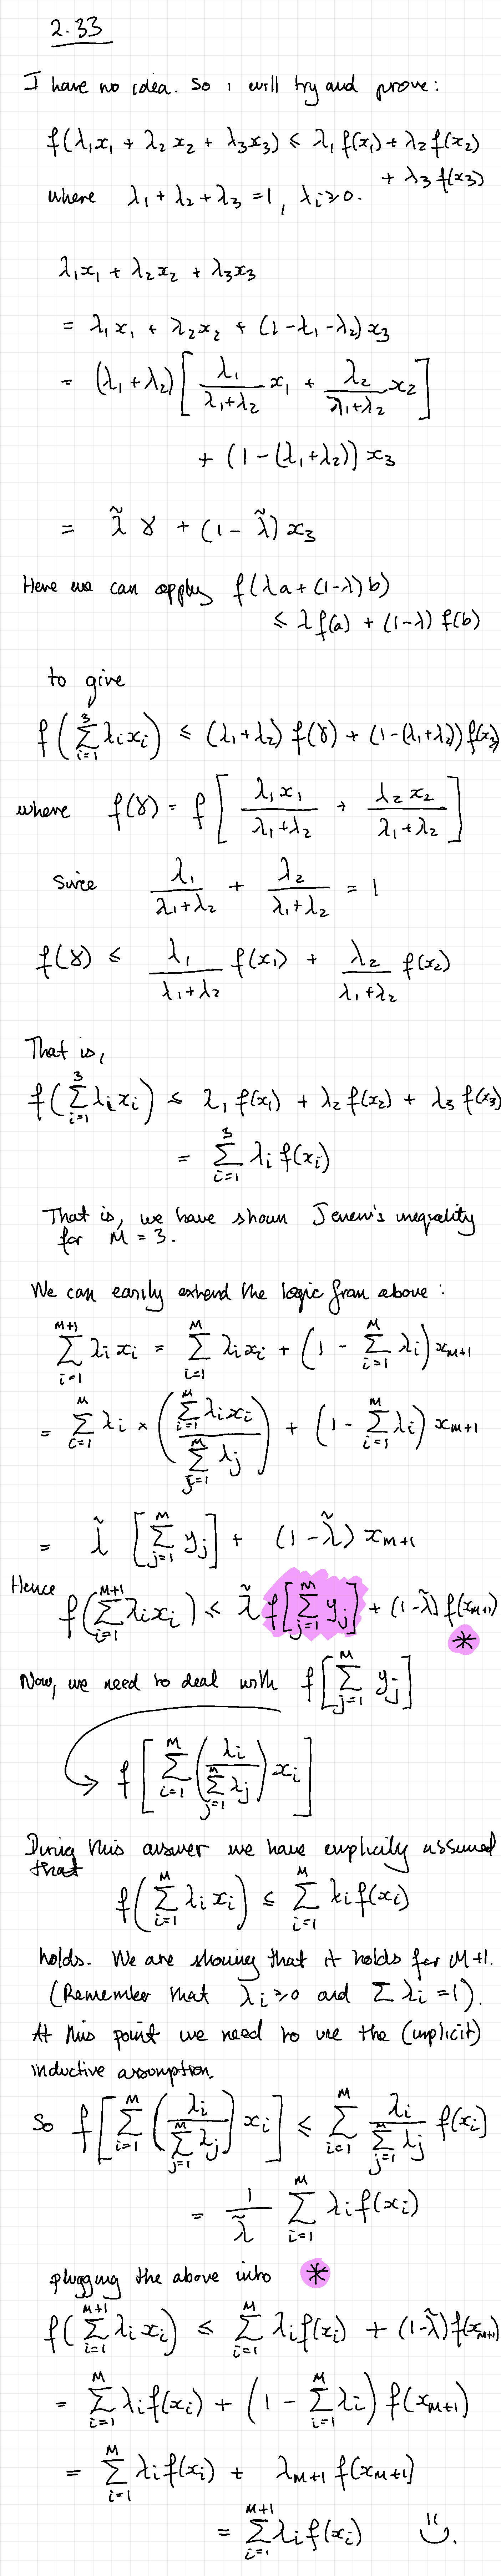 2.33
I have no idea. So i will try and prove:
f(λ₁x₁ + λ₂x₂ + λ₃x₃) ≤ λ₁f(x₁) + λ₂f(x₂)
+ λ₃f(x₃)
where λ₁ + λ₂ + λ₃ = 1, λᵢ ≥ 0.
λ₁x₁ + λ₂x₂ + λ₃x₃
= λ₁x₁ + λ₂x₂ + (1 - λ₁ - λ₂) x₃
= (λ₁ + λ₂) [ λ₁/(λ₁+λ₂) x₁ + λ₂/(λ₁+λ₂) x₂ ]
+ (1 - (λ₁+λ₂)) x₃
= λ̃ γ + (1 - λ̃) x₃
Here we can apply f(λa + (1-λ)b)
≤ λf(a) + (1-λ) f(b)
to give
f(∑_{i=1}^{3} λᵢxᵢ) ≤ (λ₁+λ₂) f(γ) + (1-(λ₁+λ₂)) f(x₃)
where f(γ) = f[ λ₁x₁/(λ₁+λ₂) + λ₂x₂/(λ₁+λ₂) ]
Since λ₁/(λ₁+λ₂) + λ₂/(λ₁+λ₂) = 1
f(γ) ≤ λ₁/(λ₁+λ₂) f(x₁) + λ₂/(λ₁+λ₂) f(x₂)
That is,
f(∑_{i=1}^{3} λᵢxᵢ) ≤ λ₁f(x₁) + λ₂f(x₂) + λ₃f(x₃)
= ∑_{i=1}^{3} λᵢ f(xᵢ)
That is, we have shown Jensen's inequality
for M = 3.
We can easily extend the logic from above:
∑_{i=1}^{M+1} λᵢxᵢ = ∑_{i=1}^{M} λᵢxᵢ + (1 - ∑_{i=1}^{M} λᵢ) x_{M+1}
= ∑_{i=1}^{M} λᵢ × ( ∑_{i=1}^{M} λᵢxᵢ / ∑_{j=1}^{M} λⱼ ) + (1 - ∑_{i=1}^{M} λᵢ) x_{M+1}
= λ̃ [∑_{j=1}^{M} yⱼ] + (1 - λ̃) x_{M+1}
Hence f(∑_{i=1}^{M+1} λᵢxᵢ) ≤ λ̃ f[∑_{j=1}^{M} yⱼ] + (1-λ̃) f(x_{M+1})
*
Now, we need to deal with f[∑_{j=1}^{M} yⱼ]
→ f[ ∑_{i=1}^{M} ( λᵢ / ∑_{j=1}^{M} λⱼ ) xᵢ ]
During this answer we have implicitly assumed
that
f(∑_{i=1}^{M} λᵢxᵢ) ≤ ∑_{i=1}^{M} λᵢf(xᵢ)
holds. We are showing that it holds for M+1.
(Remember that λᵢ ≥ 0 and ∑λᵢ = 1).
At this point we need to use the (implicit)
inductive assumption.
So f[ ∑_{i=1}^{M} ( λᵢ / ∑_{j=1}^{M} λⱼ ) xᵢ ] ≤ ∑_{i=1}^{M} λᵢ / ∑_{j=1}^{M} λⱼ f(xᵢ)
= 1/λ̃ ∑_{i=1}^{M} λᵢf(xᵢ)
plugging the above into *
f(∑_{i=1}^{M+1} λᵢxᵢ) ≤ ∑_{i=1}^{M} λᵢf(xᵢ) + (1-λ̃)f(x_{M+1})
= ∑_{i=1}^{M} λᵢf(xᵢ) + (1 - ∑_{i=1}^{M} λᵢ) f(x_{M+1})
= ∑_{i=1}^{M} λᵢf(xᵢ) + λ_{M+1} f(x_{M+1})
= ∑_{i=1}^{M+1} λᵢf(xᵢ)